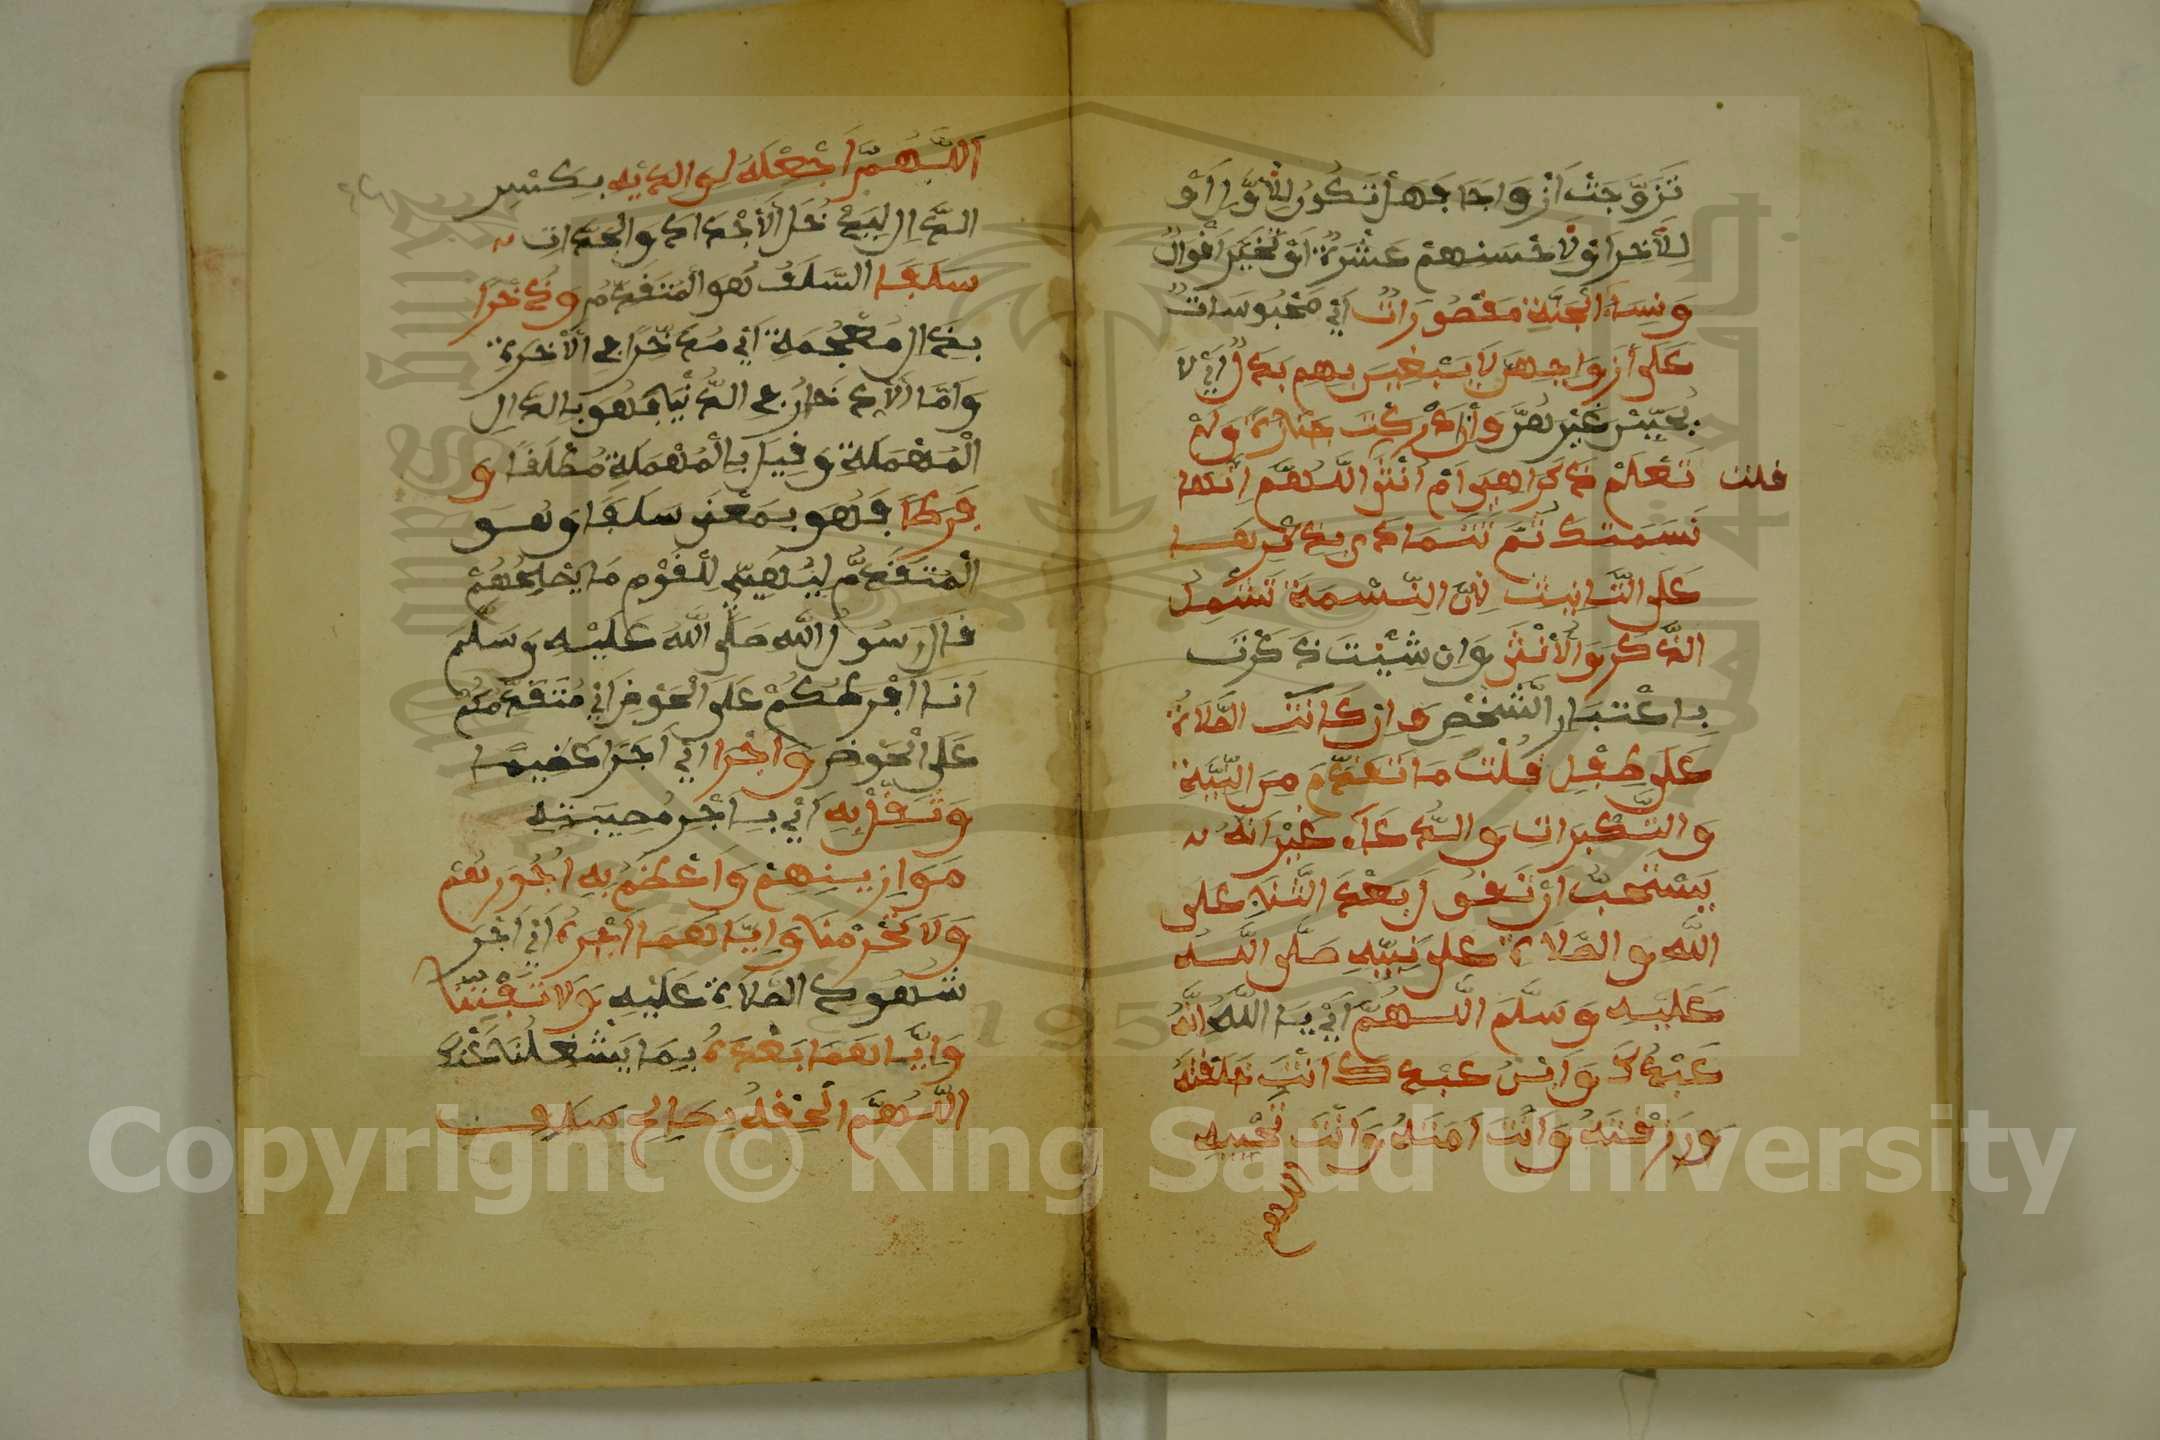 تَزَوَّجَتْ أَزْوَاجًا فَهَلْ تَكُونُ لِلْأَوَّلِ أَوْ
لِلْأَخِرِ أَوْ لِأَحْسَنِهِمْ عَشْرَةً أَوْ تُخَيَّرُ أَقْوَالٌ
وَنِسَاءُ الْجَنَّةِ مَقْصُورَاتٌ أَيْ مَحْبُوسَاتٌ
عَلَى أَزْوَاجِهِنَّ لَا يَبْغِينَ بِهِمْ بَدَلًا أَيْ لَا
يُحِبِّينَ غَيْرَهُنَّ وَإِنْ أَدْرَكْتَ جَنَازَةً وَلَمْ
قلت تَعْلَمْ ذَكَرًا هِيَ أَمْ أُنْثَى اللَّهُمَّ إِنَّهَا
نَسَمَتُكَ ثُمَّ تَتَمَادَى بِذِكْرِهَا
عَلَى التَّانِيثِ لِأَنَّ النِّسْمَةَ تَشْمِلُ
الذَّكَرَ وَالْأُنْثَى وَإِنْ شِيْتَ ذَكَرْتَ
بِاعْتِبَارِ الشَّخْصِ وَإِنْ كَانَتِ الصَّلَاةُ
عَلَى طِفْلٍ قُلْتَ مَا تَقَدَّمَ مِنَ النِّيَّةِ
وَالتَّكْبِيرَاتِ وَالدُّعَاءِ غَيْرَ أَنَّهُ
يَسْتَحِبُّ أَنْ تَقُولَ بَعْدَ الثَّنَاءِ عَلَى
اللَّهِ وَالصَّلَاةِ عَلَى نَبِيِّهِ صَلَّى اللَّهُ
عَلَيْهِ وَسَلَّمَ اللَّهُمَّ أَيْ يَا اللَّهُ إِنَّهُ
عَبْدُكَ وَابْنُ عَبْدِكَ أَنْتَ خَلَقْتَهُ
وَرَزَقْتَهُ وَأَنْتَ أَمَتَّهُ وَأَنْتَ تُحْيِيهِ
اللهم
اللَّهُمَّ اجْعَلْهُ لِوَالِدَيْهِ بِكَسْرِ
الدَّالِ لِيَدْخُلَ الْأَجْدَادُ وَالْجَدَّاتِ
سَلَفًا السَّلَفُ هُوَ الْمُتَقَدِّمُ وَذُخْرًا
بِذَالٍ مُعْجَمَةٍ أَيْ مُدَّخَرًا فِي الْأَخِرَةِ
وَأَمَّا الْإِدِّخَارُ فِي الدُّنْيَا فَهُوَ بِالدَّالِ
الْمُهْمَلَةِ وَقِيلَ بِالْمُهْمَلَةِ مُطْلَقًا وَ
فَرَطًا فَهُوَ بِمَعْنَى سَلَفًا وَهُوَ
الْمُتَقَدِّمُ لِيُهَيِّئَ لِلْقَوْمِ مَا يُصْلِحُهُمْ
قَالَ رَسُولُ اللَّهِ صَلَّى اللَّهُ عَلَيْهِ وَسَلَّمَ
أَنَا أَفْرَطُكُمْ عَلَى الْحَوْضِ أَيْ مُتَقَدِّمُكُمْ
عَلَى الْحَوْضِ وَأَجْرًا أَيْ أَجْرًا عَظِيمًا
وَثَقِّلْ بِهِ أَيْ بِأَجْرِ مُصِيبَتِهِ
مَوَازِينَهُمْ وَأَعْظِمْ بِهِ أُجُورَهُمْ
وَلَا تَحْرِمْنَا وَإِيَّاهُمَا أَجْرَهُ أَيْ أَجْرَ
شُهُودِ الصَّلَاةِ عَلَيْهِ وَلَا تَفْتِنَّا
وَإِيَّاهُمَا بَعْدَهُ بِمَا يَشْغَلُنَا عَنْكَ
اللَّهُمَّ أَلْحِقْهُ بِصَالِحِ سَلَفِ
Copyright © King Saud University
1957